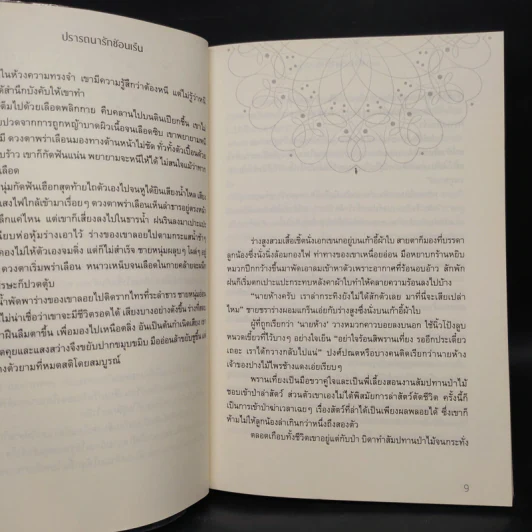 ปรารถนารักซ่อนเร้น
ในห้วงความทรงจำ เขามีความรู้สึกว่าต้องหนี แต่ไม่รู้ว่าหนี
สำนึกบังคับให้เขาทำ
ไปด้วยเลือดพลิกกาย คืบคลานไปบนดินเปียกชื้น เขา
ปวดจากการถูกหญ้าบาดผิวเนื้อจนเลือดซิบ เขาพยายาม
ดวงตาพร่าเลือนมองทางด้านหน้าไม่ชัด ทั่วทั้งตัวเปื้อน
ร้าว เขาก็กัดฟันแน่น พยายามจะหนีให้ได้ ไม่สนใจแม้ว่า
เลือด
หนุ่มกัดฟันเฮือกสุดท้ายไถตัวเองไปจนหูได้ยินเสียงน้ำไหล
แสงไฟใกล้เข้ามาเรื่อยๆ ดวงตาพร่าเลือนเห็นลำธารอยู่ตรงหน้า
ลึกแค่ไหน แต่เขาก็เสี่ยงลงไปในธารน้ำ ฝนรินลงมา
เงียบห่อหุ้มร่างเอาไว้ ร่างของเขาลอยไปตามกระแสน้ำช้าๆ
ไม่ให้ตัวเองจมดิ่ง แต่ก็ไม่สำเร็จ ชายหนุ่มผลุบๆ โผล่ๆ อยู่
ดวงตาเริ่มพร่าเลือน หนาวเหน็บจนเลือดในกาย
ศีรษะก็ปวดตุ้บ
น้ำพัดพาร่างของเขาลอยไปติดรากไทรที่ระลำธาร ชายหนุ่ม
ไม่น่าเชื่อว่าเขาจะมีชีวิตรอดได้ เสียงบางอย่างดังขึ้น
ฝืนลืมตาขึ้น เพื่อมองไปเหนือตลิ่ง อันเป็นต้นกำเนิดเสียง
คุยและแสงสว่างจึงขยับปากขมุบขมิบ มืออ่อนล้าขยับชูขึ้น
ตัวยามที่หมดสติโดยสมบูรณ์
ร่างสูงสวมเสื้อเชิ้ตนั่งเอกเขนกอยู่บนเก้าอี้ผ้าใบ สายตาก็มองที่บรรดา
ลูกน้องซึ่งนั่งนิ่งล้อมกองไฟ ท่าทางของเขาเหนื่อยอ่อน มือหยาบกร้านหยิบ
หมวกปีกกว้างขึ้นมาพัดเอาลมเข้าหาตัวเพราะอากาศที่ร้อนอบอ้าว สักพัก
ฝนก็เริ่มตกเปาะแปะกระทบหลังคาผ้าใบทำให้คลายความร้อนลงไปบ้าง
“นายห้างครับ เราล่ากระทิงยังไม่ได้สักตัวเลย มาที่นี่จะเสียเปล่า
ไหม” ชายชราร่างผอมแกร็นเอ่ยกับร่างสูงซึ่งนั่งบนเก้าอี้ผ้าใบ
ผู้ที่ถูกเรียกว่า ‘นายห้าง’ วางหมวกคาวบอยลงบนอก ใช้นิ้วโป้งลูบ
หนวดเขี้ยวที่ไว้บางๆ อย่างใจเย็น “อย่าใจร้อนสิพรานเที่ยง รออีกประเดี๋ยว
เถอะ เราได้กวางกลับไปแน่” ปงศ์ปณตหรือบางคนติดเรียกว่านายห้าง
เจ้าของปางไม้ไพรช้างแดงเอ่ยเรียบๆ
พรานเที่ยงเป็นมือขวาคู่ใจและเป็นพี่เลี้ยงสอนงานสัมปทานป่าไม้
ชอบเข้าป่าล่าสัตว์ ส่วนตัวเขาเองไม่ได้พิสมัยการล่าสัตว์ตัดชีวิต ครั้งนี้ก็
เป็นการเข้าป่าฆ่าเวลาเฉยๆ เรื่องสัตว์ที่ล่าได้เป็นเพียงผลพลอยได้ ซึ่งเขาก็
ห้ามไม่ให้ลูกน้องล่าเกินกว่าหนึ่งถึงสองตัว
ตลอดเกือบทั้งชีวิตเขาอยู่แต่กับป่า บิดาทำสัมปทานป่าไม้จนกระทั่ง
9